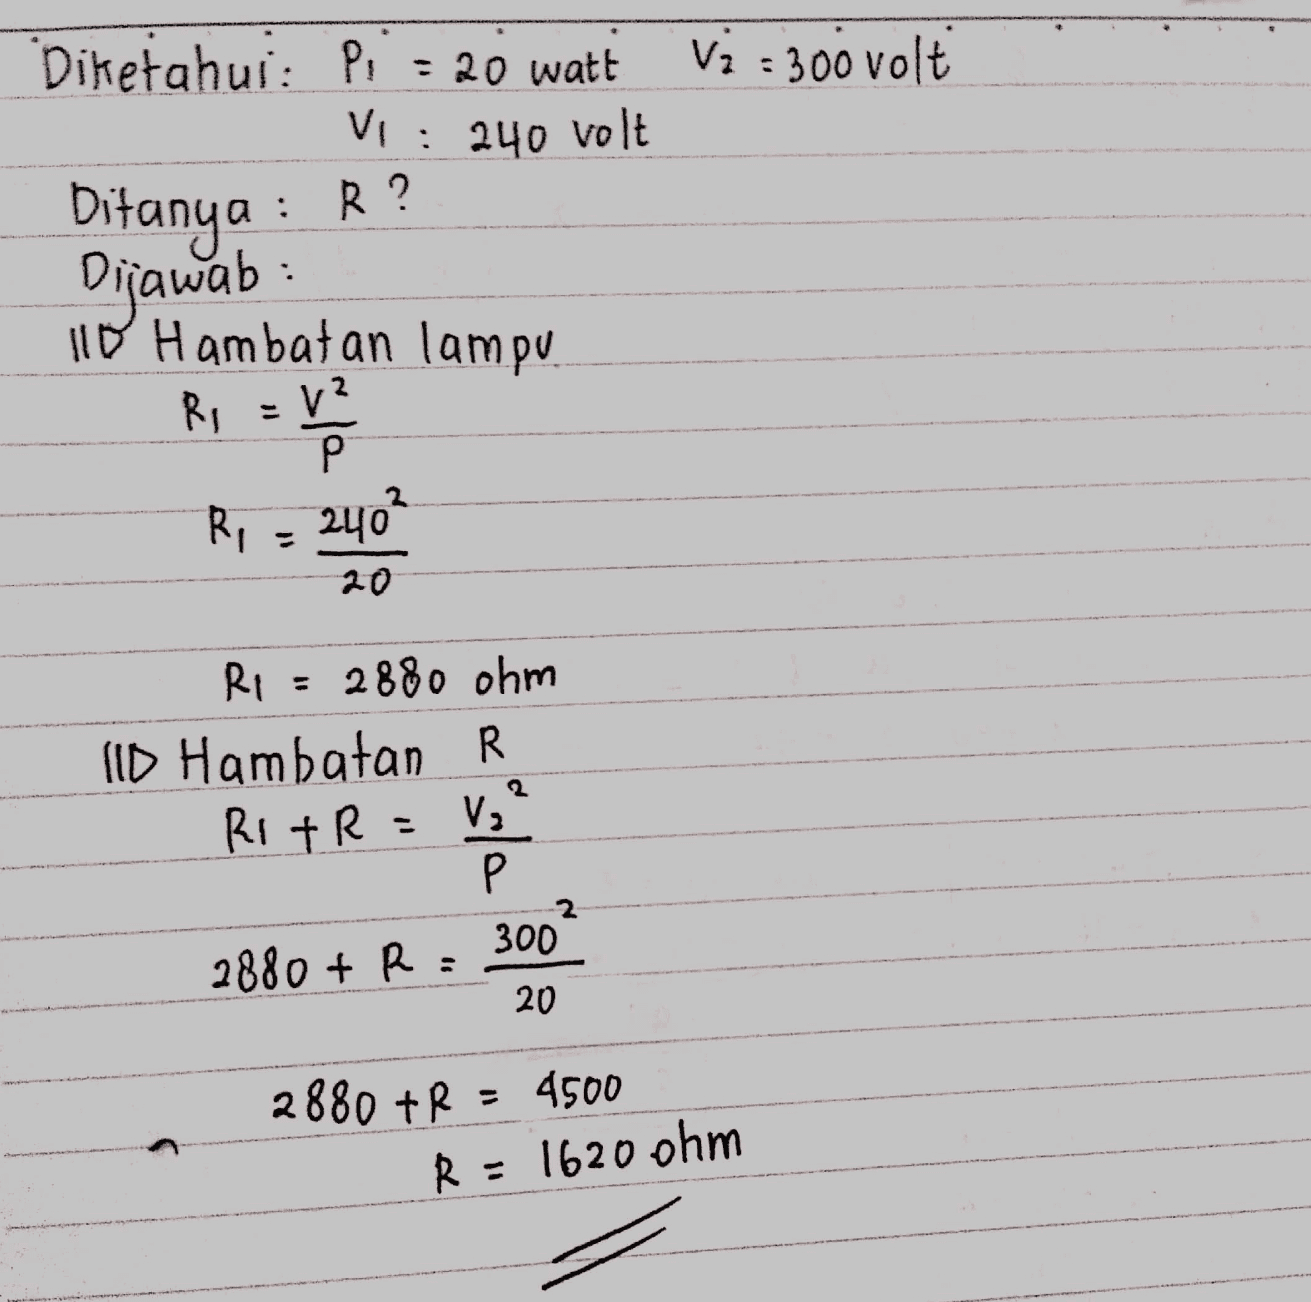 Diketahui: P1 = 20 watt V2 = 300 volt
V1 : 240 volt
Ditanya : R ?
Dijawab :
Hambatan lampu
R1 = V²/P
R1 = 240²/20
R1 = 2880 ohm
Hambatan R
R1 + R = V2²/P
2880 + R = 300²/20
2880 + R = 4500
R = 1620 ohm